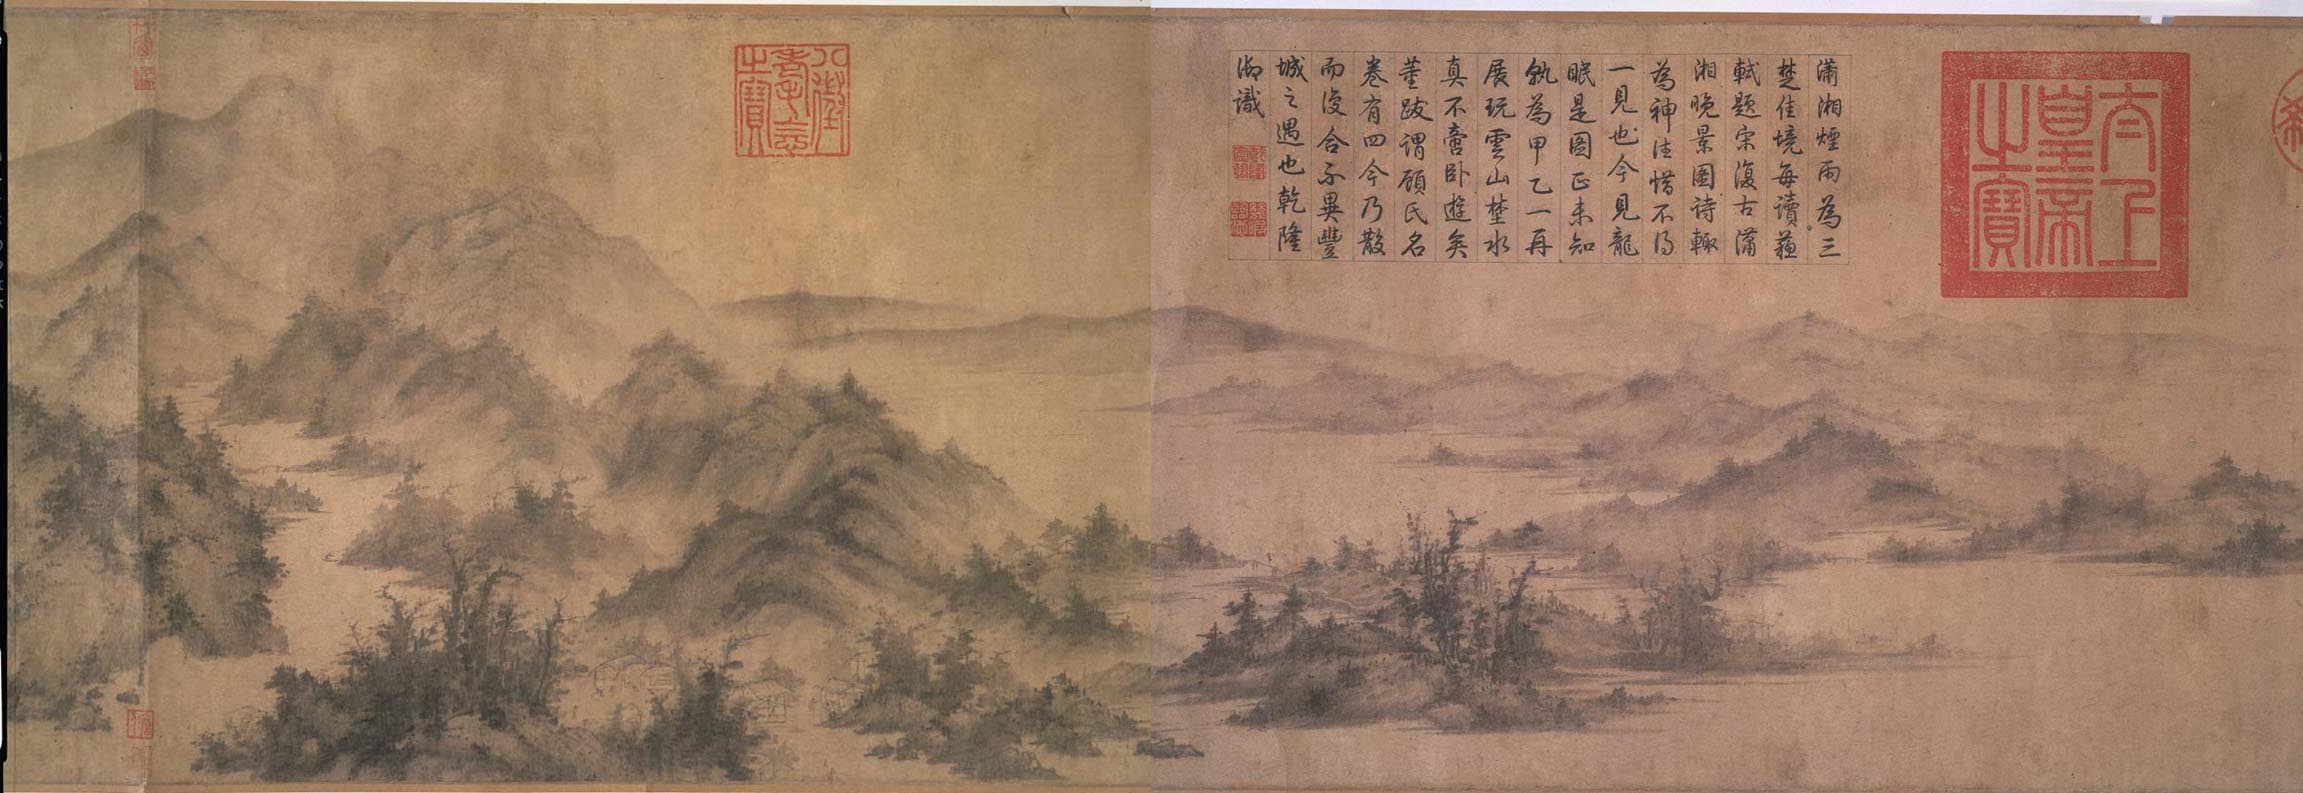 太上
皇帝
之寶
瀟湘煙雨為三
楚佳境每讀蘓
軾題宋復古瀟
湘晚景圖詩輙
為神往惜不得
一見也今見龍
眠是圖正未知
孰為甲乙一再
展玩雲山埜水
真不啻臥遊矣
董跋謂顧氏名
卷有四今乃散
而復合不異豐
城之遇也乾隆
御識
八徵
耄念
之寶